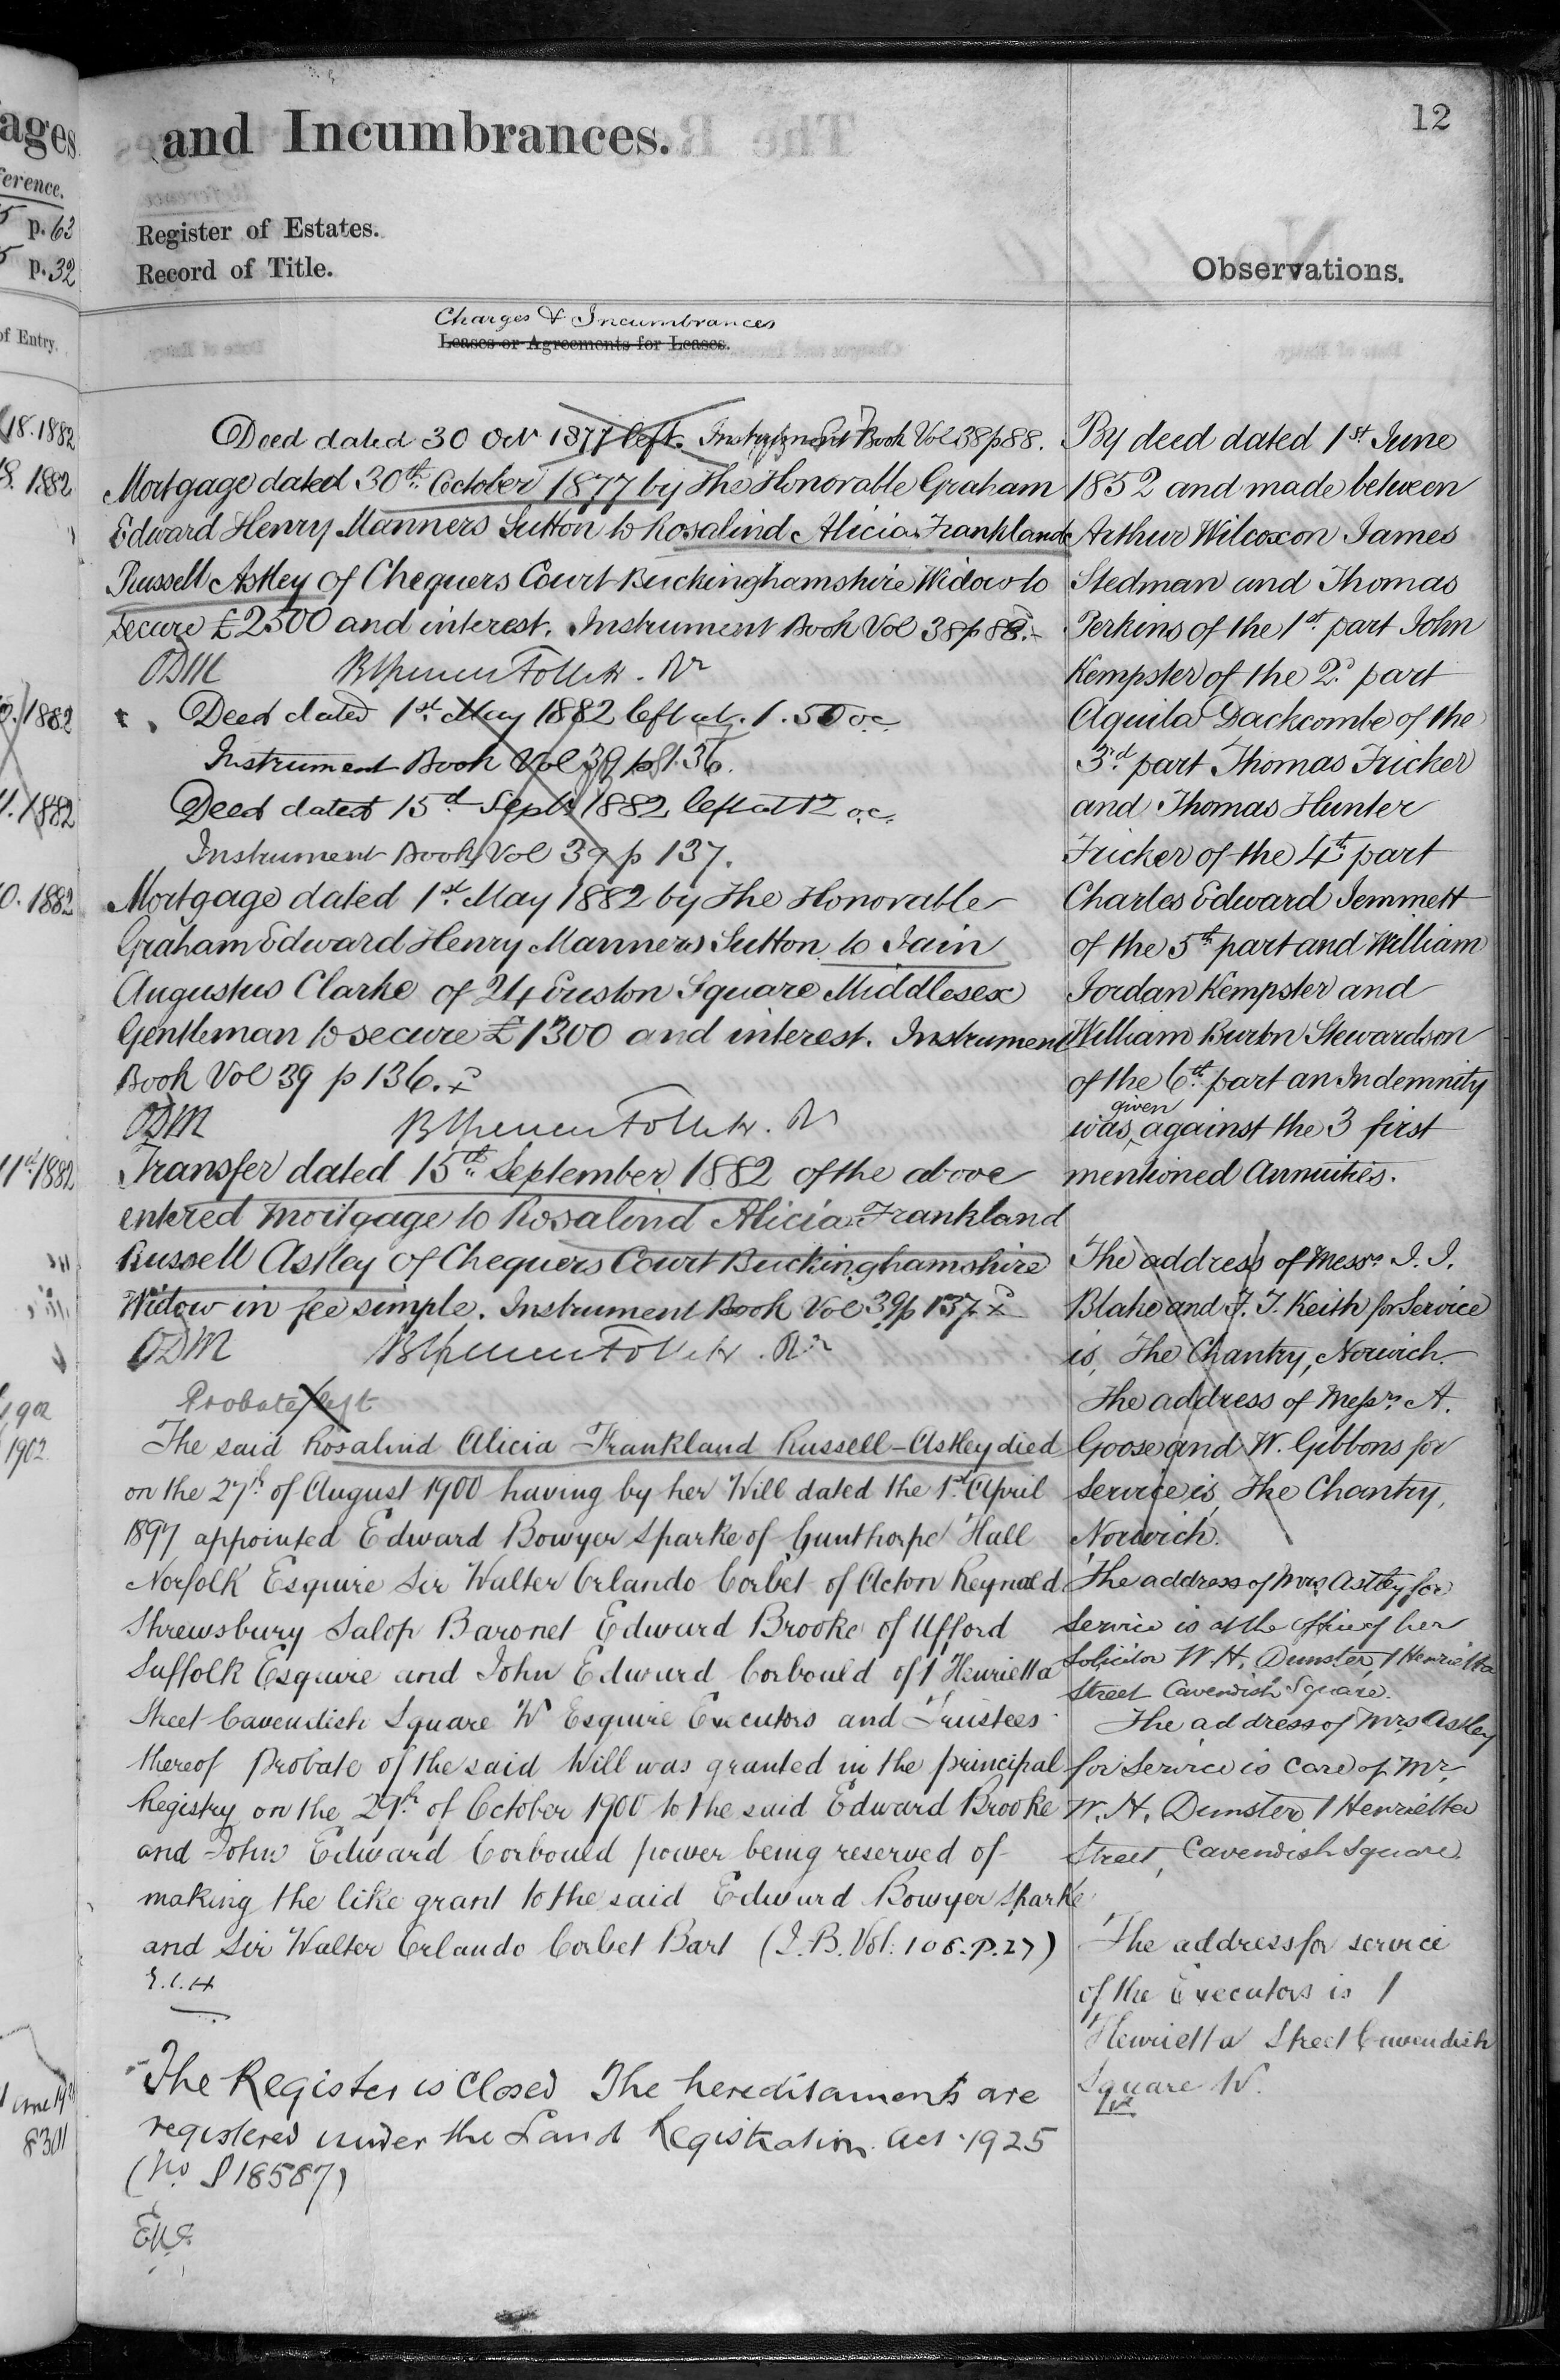 ages
and Incumbrances.
12
ference.
p. 63
p. 32
Register of Estates.
Record of Title.
Observations.
of Entry.
Charges & Incumbrances
Leases or Agreements for Leases.
18. 1882
8. 1882
2. 1882
1. 1882
0. 1882
11th 1882
1902
1902
8301
Deed dated 30 Oct 1877 left. Instrument Book Vol 38 p 88.
Mortgage dated 30th October 1877 by The Honorable Graham
Edward Henry Manners Sutton to Rosalind Alicia Frankland
Russell Astley of Chequers Court Buckinghamshire Widow to
secure £2500 and interest. Instrument Book Vol 38 p 88.
ODM
Deed dated 1st May 1882 left at 1.50 oc.
Instrument Book Vol 39 p 136.
Deed dated 15d Septr 1882 left at 12 oc.
Instrument Book Vol 39 p 137.
Mortgage dated 1st May 1882 by The Honorable
Graham Edward Henry Manners Sutton to Iain
Augustus Clarke of 24 Euston Square Middlesex
Gentleman to secure £1300 and interest. Instrument
Book Vol 39 p 136.
ODM
Transfer dated 15th September 1882 of the above
entered mortgage to Rosalind Alicia Frankland
Russell Astley of Chequers Court Buckinghamshire
Widow in fee simple. Instrument Book Vol 39 p 137
ODM
Probate left
The said Rosalind Alicia Frankland Russell-Astley died
on the 27th of August 1900 having by her Will dated the 1st April
1897 appointed Edward Bowyer Sparke of Gunthorpe Hall
Norfolk Esquire Sir Walter Orlando Corbet of Acton Reynald
Shrewsbury Salop Baronet Edward Brooke of Ufford
Suffolk Esquire and John Edward Corbould of 1 Henrietta
Street Cavendish Square W Esquire Executors and Trustees
thereof Probate of the said Will was granted in the principal
Registry on the 29th of October 1900 to the said Edward Brooke
and John Edward Corbould power being reserved of
making the like grant to the said Edward Bowyer Sparke
and Sir Walter Orlando Corbet Bart (I.B. Vol: 106. P. 27)
The Register is Closed The hereditaments are
registered under the Land Registration Act 1925
(No P 18587)
By deed dated 1st June
1852 and made between
Arthur Wilcoxon James
Stedman and Thomas
Perkins of the 1st part John
Kempster of the 2d part
Aquila Dackcombe of the
3rd part Thomas Fricker
and Thomas Hunter
Fricker of the 4th part
Charles Edward Jemmett
of the 5th part and William
Jordan Kempster and
William Burton Stewardson
of the 6th part an Indemnity
given
was against the 3 first
mentioned Annuities.
The address of Messrs I. I.
Blake and J. J. Keith for Service
is, The Chantry, Norwich.
The address of Messrs A.
Goose and W. Gibbons for
service is, The Chantry,
Norwich.
The address of Mrs Astley for
Service is at the office of her
Solicitor W. H. Dunster, 1 Henrietta
Street Cavendish Square.
The address of Mrs Astley
for Service is care of Mr.
W. H. Dunster 1 Henrietta
Street, Cavendish Square.
The address for service
of the Executors is 1
Henrietta Street Cavendish
Square W.